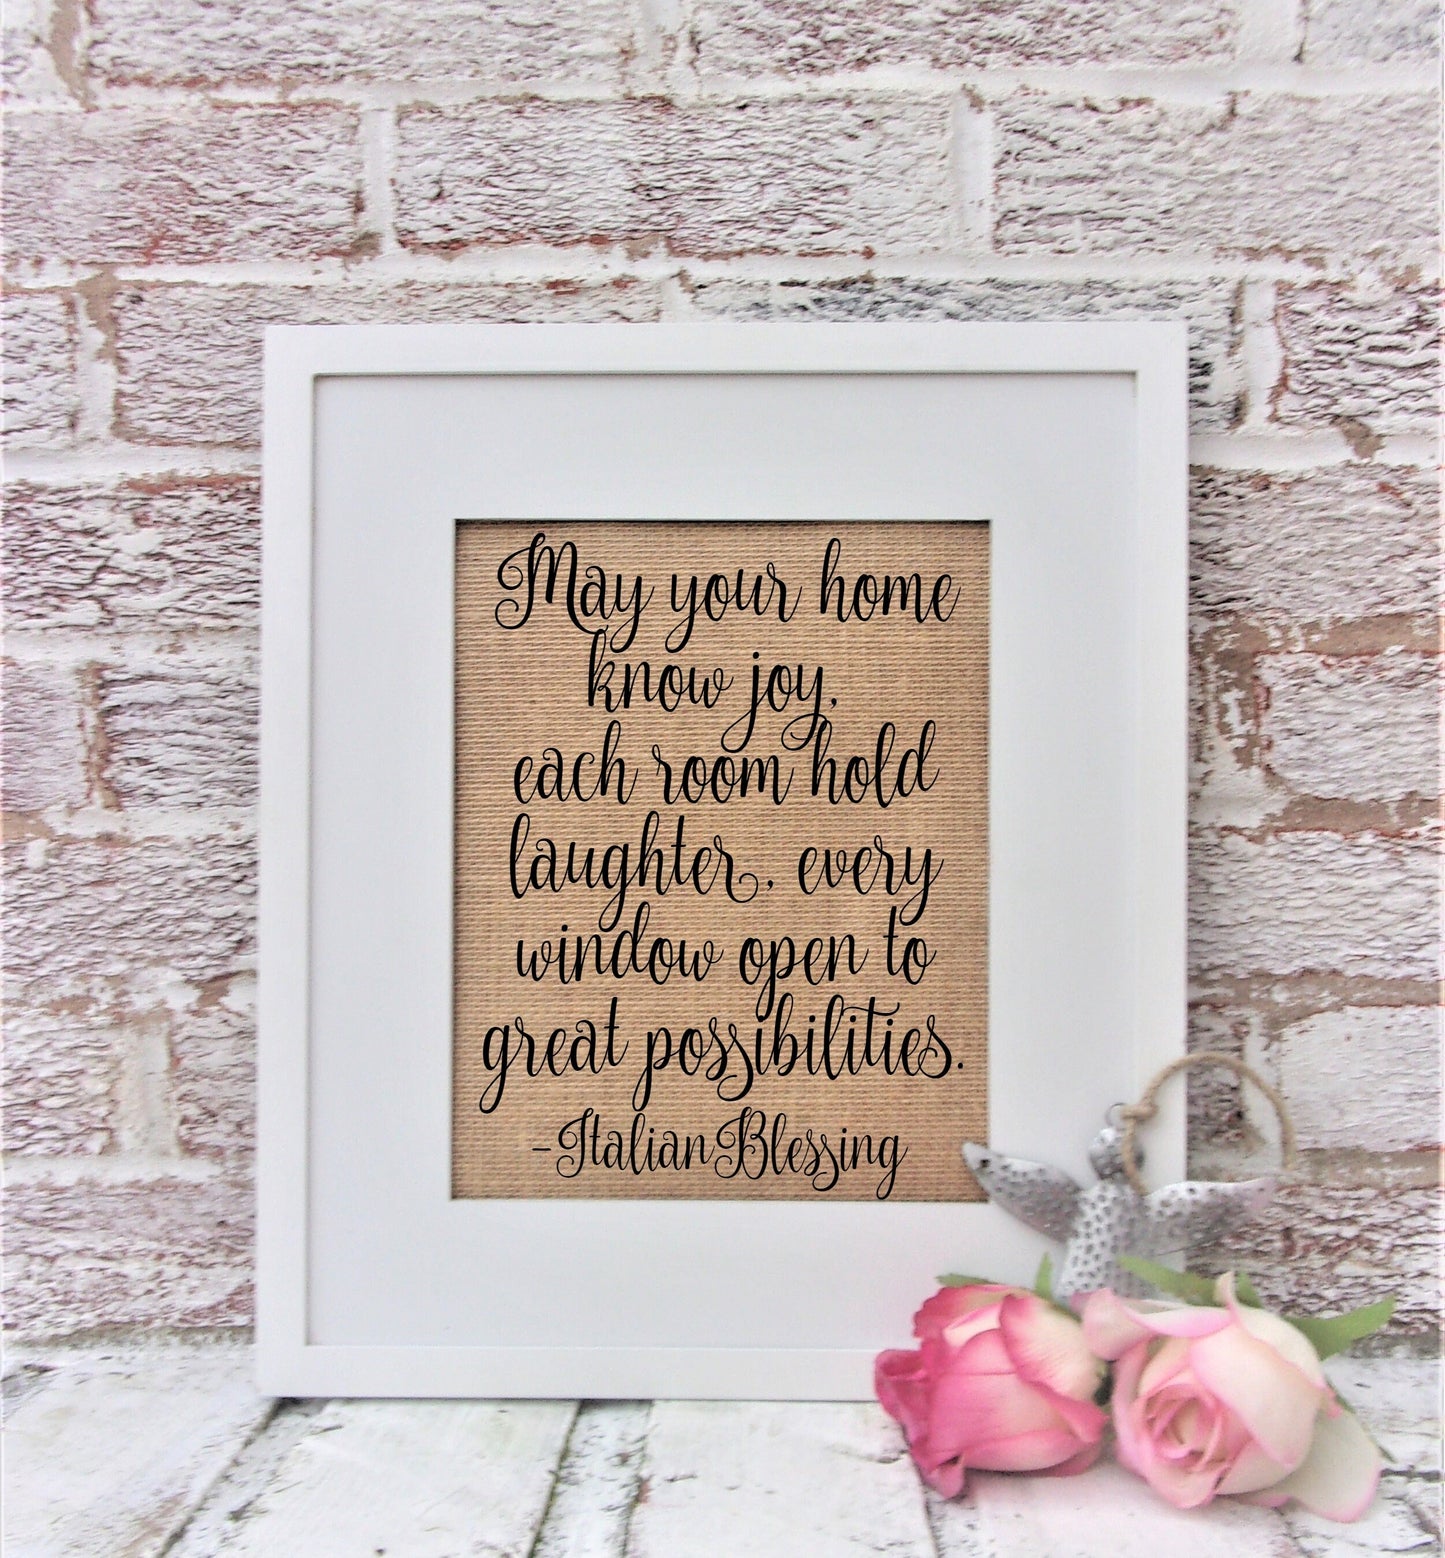 May your home
know joy,
each room hold
laughter, every
window open to
great possibilities.
-Italian Blessing